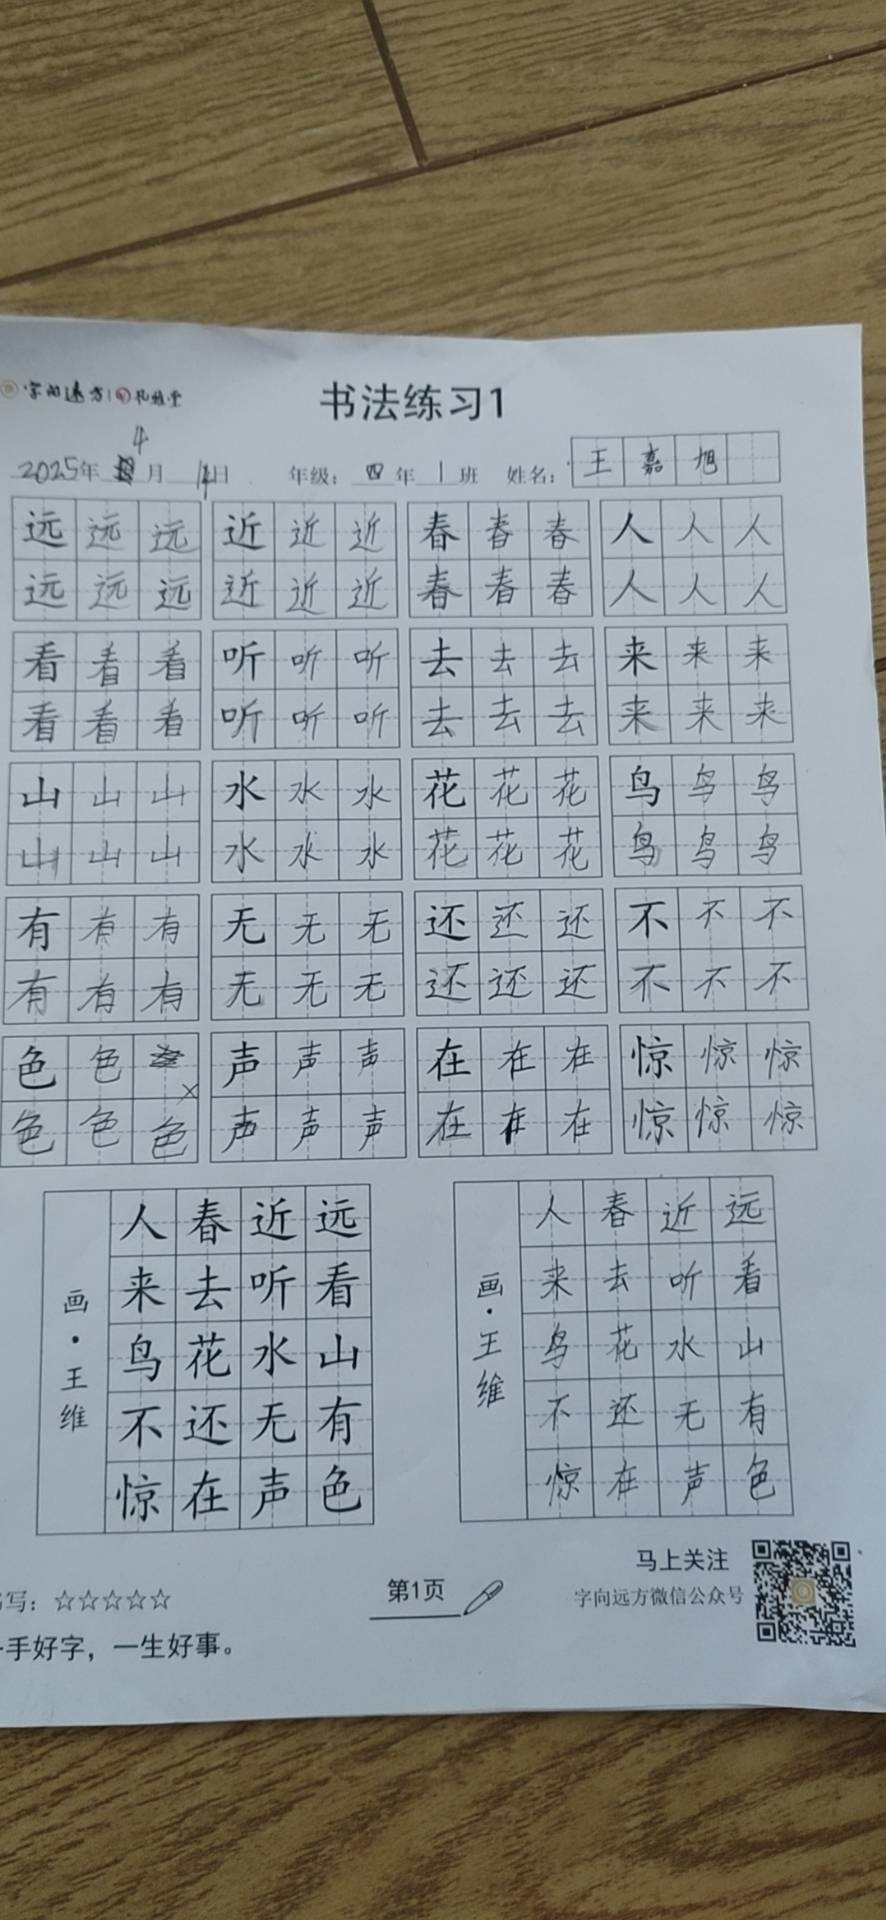 字向远方
书法练习1
4
2025年 月 14日 年级：四年 1 班 姓名：王嘉旭
远远远 近近近 春春春 人人人
远远远 近近近 春春春 人人人
看看看 听听听 去去去 来来来
看看看 听听听 去去去 来来来
山山山 水水水 花花花 鸟鸟鸟
山山山 水水水 花花花 鸟鸟鸟
有有有 无无无 还还还 不不不
有有有 无无无 还还还 不不不
色色 声声声 在在在 惊惊惊
色色色 声声声 在在在 惊惊惊
远看山有色
近听水无声
春去花还在
人来鸟不惊
画·王维
远看山有色
近听水无声
春去花还在
人来鸟不惊
画·王维
马上关注
字向远方微信公众号
第1页
写：☆☆☆☆☆
手好字，一生好事。